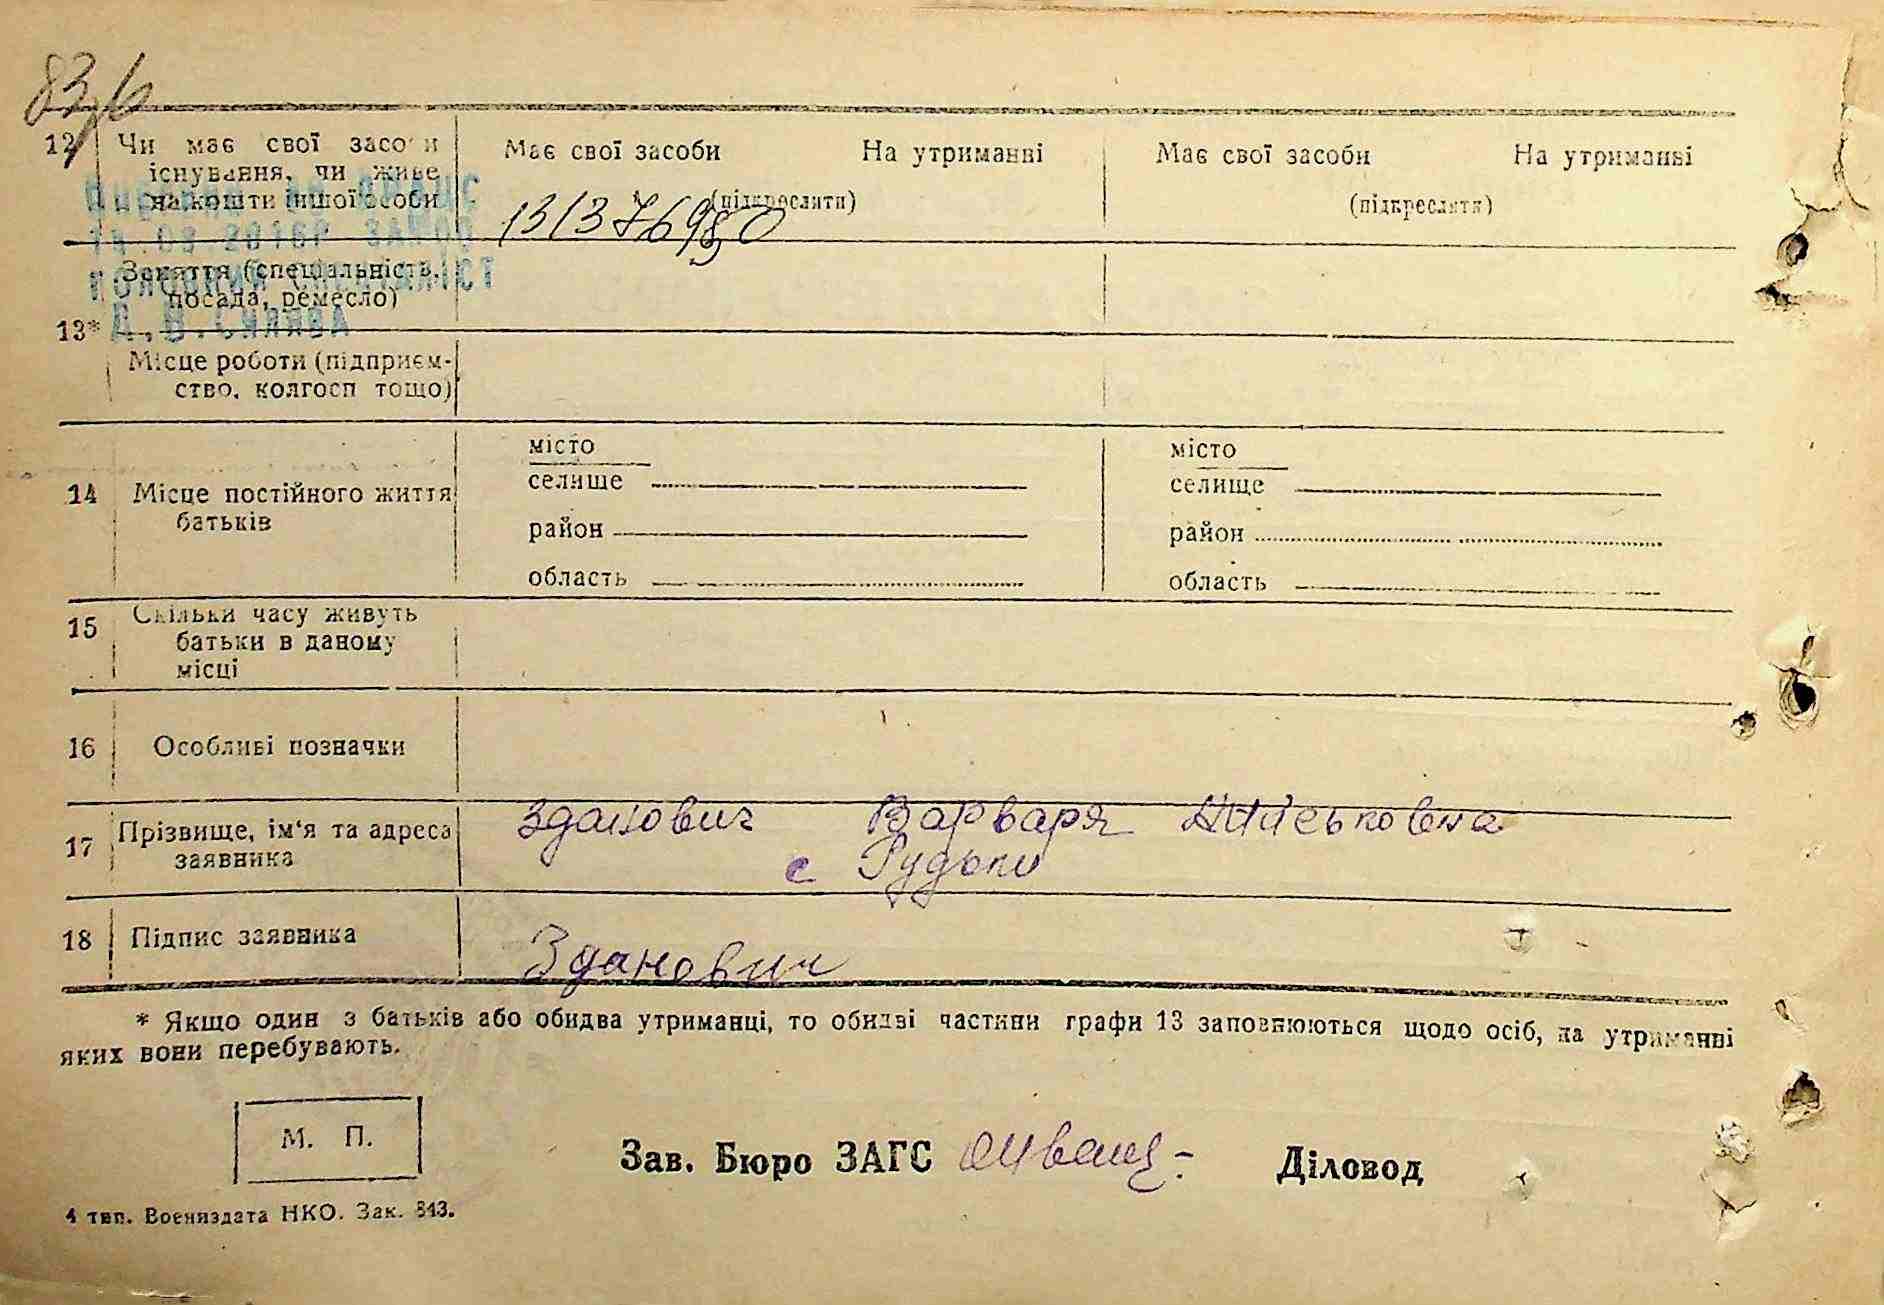 83/6
12 Чи має свої засоби існування, чи живе на кошти іншої особи
Має свої засоби На утриманні
(підкреслити)
Має свої засоби На утриманні
(підкреслити)
1313769
13* Заняття (спеціальність, посада, ремесло)
Місце роботи (підприєм-
ство, колгосп тощо)
14 Місце постійного життя
батьків
місто
селище
район
область
місто
селище
район
область
15 Скільки часу живуть
батьки в даному
місці
16 Особливі позначки
17 Прізвище, ім'я та адреса
заявника
Зданович Варваря
с Рудьки
18 Підпис заявника
Зданович
* Якщо один з батьків або обидва утриманці, то обидві частини графи 13 заповнюються щодо осіб, на утриманні
яких вони перебувають.
М. П.
Зав. Бюро ЗАГС Діловод
4 тип. Воениздата НКО. Зак. 843.